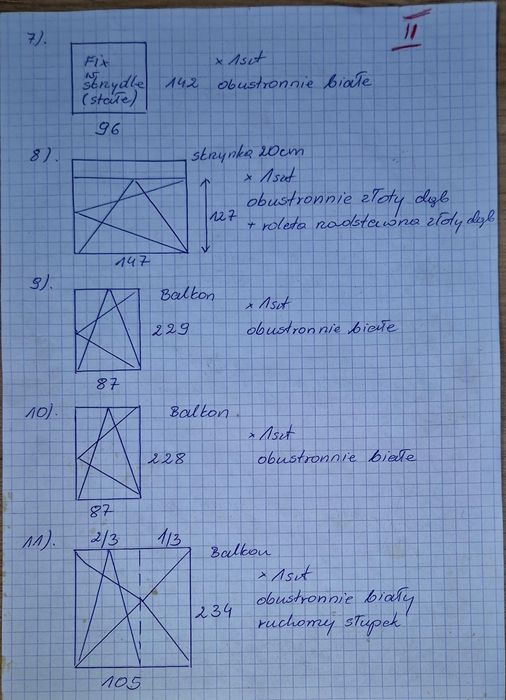 II
7).
Fix
w
skrzydle
(stałe)
142
96
× 1szt
obustronnie białe
8).
skrzynka 20cm
× 1szt
127
obustronnie złoty dąb
+ roleta nadstawna złoty dąb
147
9).
Balkon
× 1szt
229
obustronnie białe
87
10).
Balkon.
× 1szt
228
obustronnie białe
87
11).
2/3 1/3
Balkon
× 1szt
234
obustronnie biały
ruchomy słupek
105